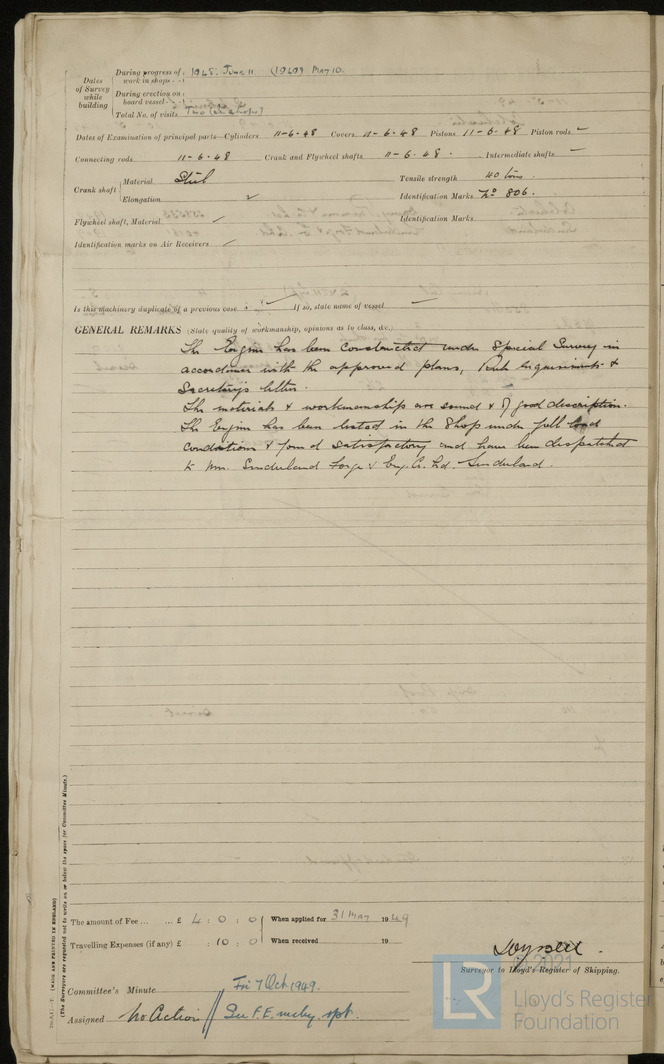 During progress of work in shops - - 1948: June 11 (1949 May 10.
Dates of Survey while building
During erection on board vessel - - -
Total No. of visits Two (at shops)
Dates of Examination of principal parts—Cylinders 11-6-48 Covers 11-6-48 Pistons 11-6-48 Piston rods —
Connecting rods 11-6-48 Crank and Flywheel shafts 11-6-48. Intermediate shafts —
Crank shaft Material Steel Tensile strength 40 tons.
Elongation ✓ Identification Marks No 806.
Flywheel shaft, Material ✓ Identification Marks
Identification marks on Air Receivers ✓
Is this machinery duplicate of a previous case If so, state name of vessel —
GENERAL REMARKS (State quality of workmanship, opinions as to class, &c.)
The Engine has been constructed under Special Survey in
accordance with the approved plans, Rule Requirements &
Secretary's letter.
The materials & workmanships are sound & of good description.
The Engine has been tested in the Shop under full load
conditions & found satisfactory and have been dispatched
to Mrs. Sunderland Forge & Eng. Co. Ld. Sunderland.
(MADE AND PRINTED IN ENGLAND)
(The Surveyors are requested not to write on or below the space for Committee Minute.)
The amount of Fee ... ... £ 4 : 0 : 0 When applied for 31 May 1949
Travelling Expenses (if any) £ : 10 : 0 When received 19
Surveyor to Lloyd's Register of Shipping.
Committee's Minute Fri 7 Oct 1949.
Assigned No Action // See F.E. mchy. rpt.
© 2021
LR
Lloyd's Register
Foundation